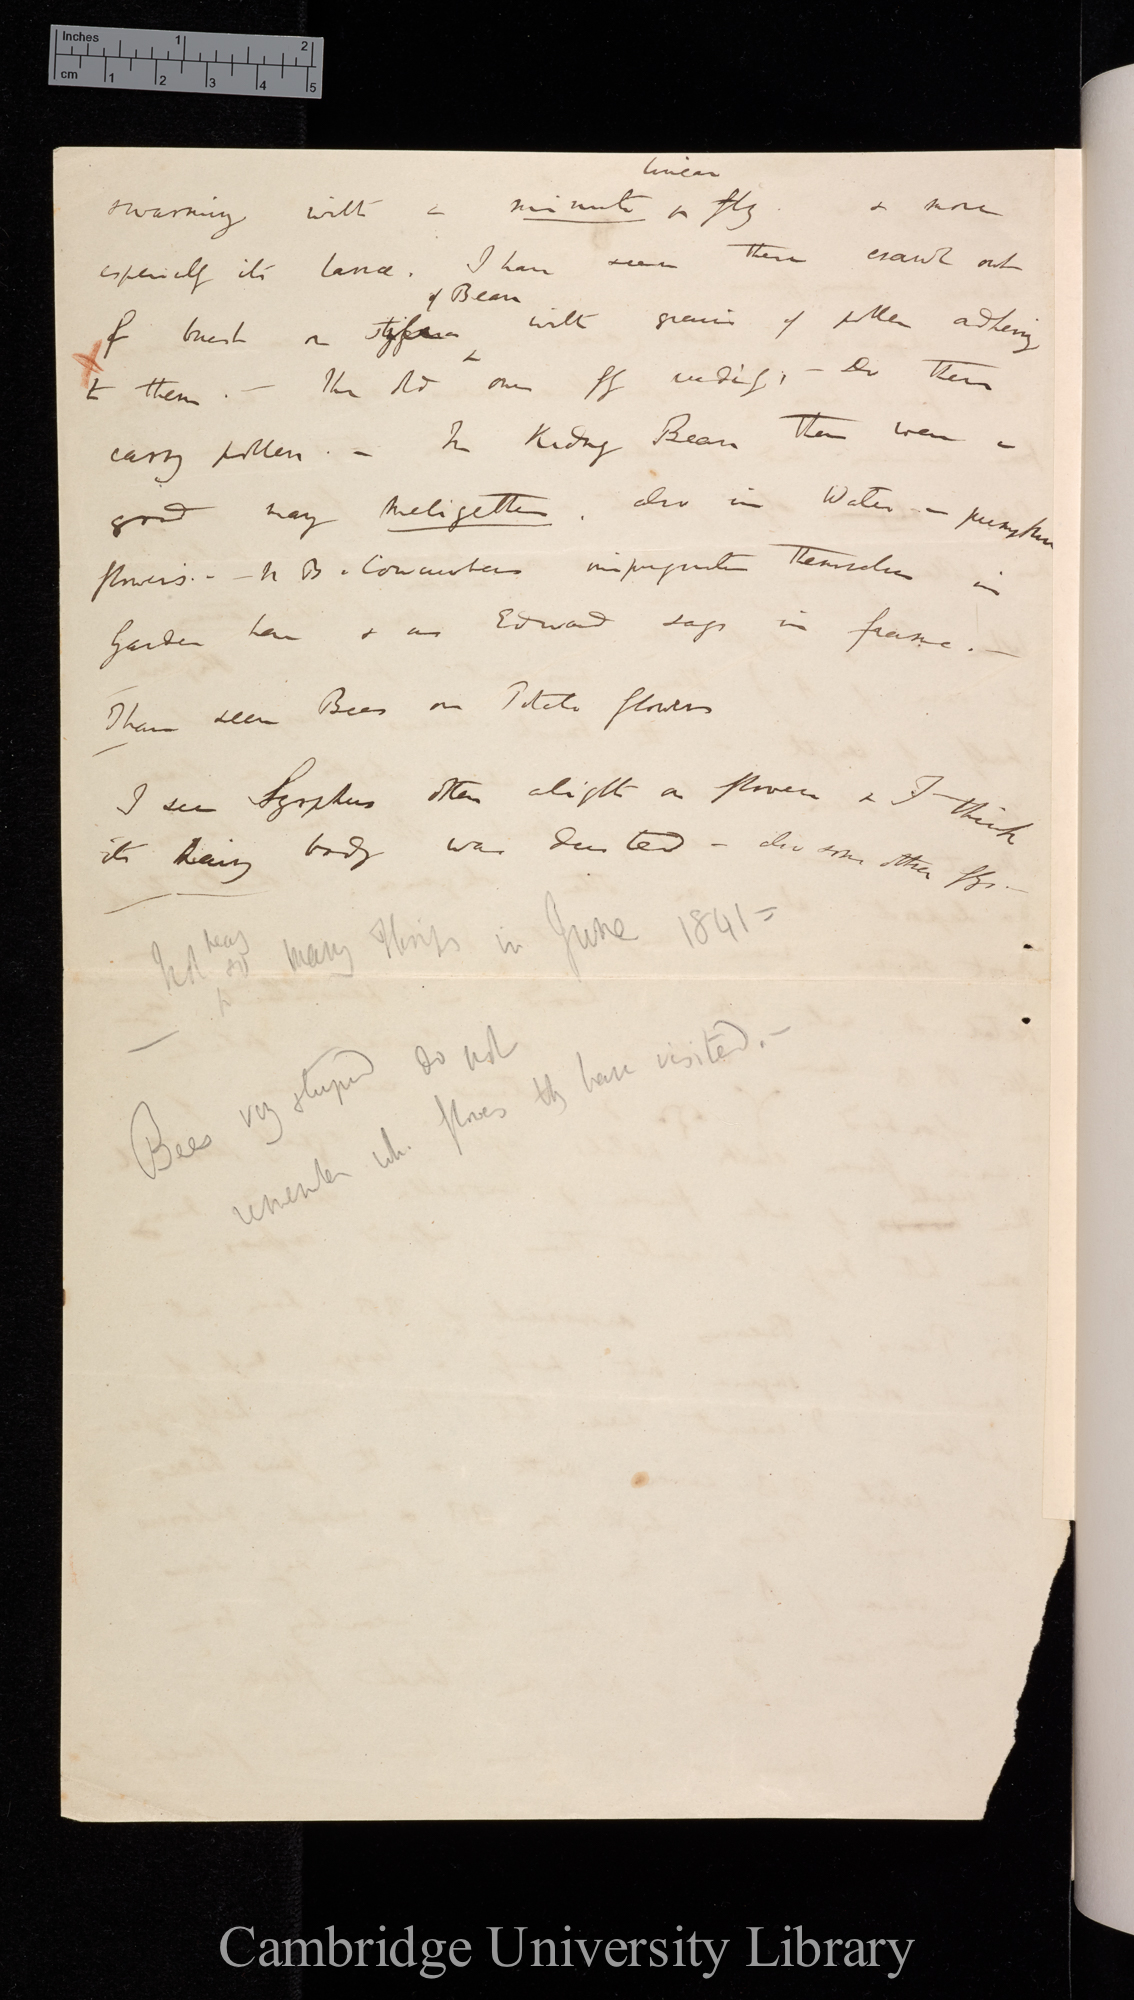 Inches 1 2
cm 1 2 3 4 5
linear
swarming with a minute fly & more
especially its larvæ. I have seen them crawl out
of Bean
of brush on stigma with grains of pollen adhering
to them. — The old ones fly readily, — Do these
carry pollen. — In Kidney Bean there were a
good many Meligethes, also in Water — pumpkin
flowers. — N B. Cowcumbers impregnate themselves in
Garden here & as Edward says in frame. —
I have seen Bees on Potato flowers
I see Syrphus often alight on flowers & I think
its hairy body was dusted — also some other flys —
near
Not so many Thrips in June 1841 =
Bees very stupid do not
remember wh. flowers thy have visited. —
Cambridge University Library